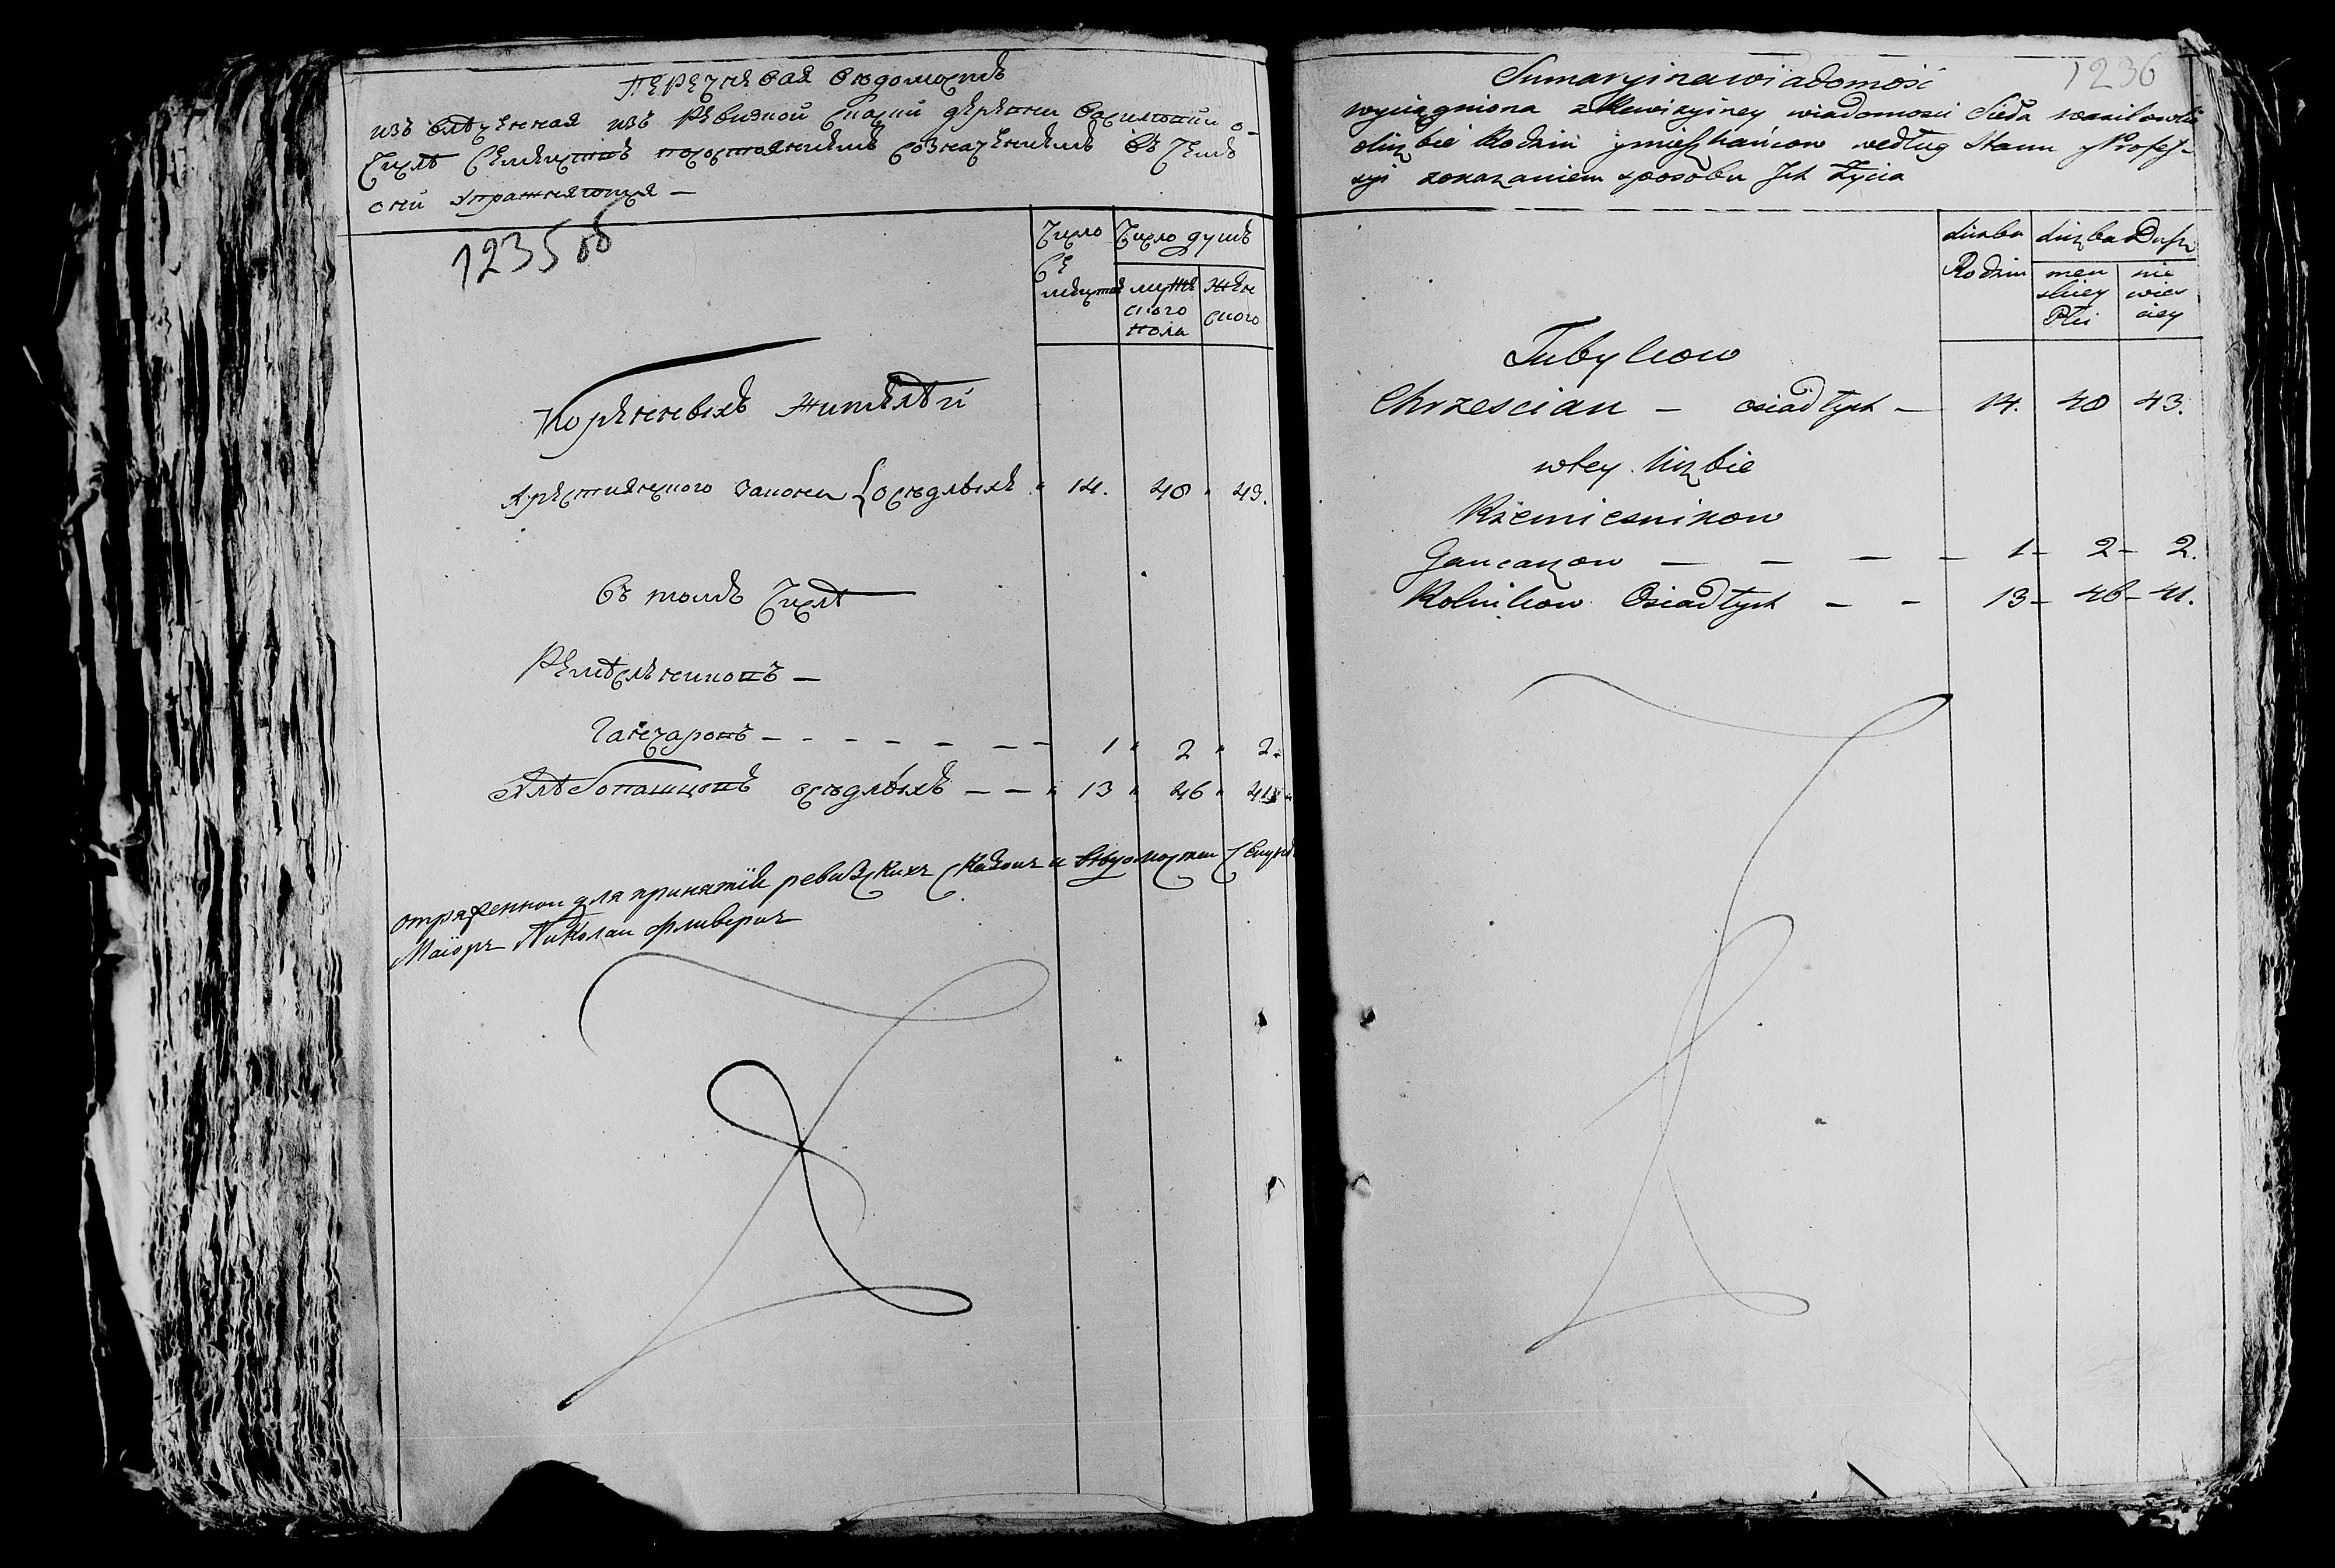 Перечневая ведомость
изъ влеченная изъ Ревизкой Скаски деревни Василковки о
Числе Семействъ посостояниямъ Созначениемъ въ Чемъ
они упражняются —
1235 об
Число Се мействъ
Число душъ
мужескаго пола
женскаго
Кореннывхъ жителей
Христианского закона { оседлыхъ " 14. 48 " 43.
Въ томъ Числе
Ремесленниковъ —
Ганчаровъ — — — — — — 1 " 2 " 2
Хлебопашцовъ оседлыхъ — — " 13 " 46 " 41
отряженнои для принятия ревизскихъ сказокъ и ведомостеи
Маиоръ Николаи
1236
Sumaryina wiadomość
wyciągniona z Rewizyiney wiadomosci Sieła wasilowki
oliczbie Rodzin ymieszkańcow według Stanu y Profes-
syi zokazaniem sposobu Jch Życia
Liczba Rodzin
Liczba Dusz
men skiey Płci
nie wies ciey
Tubylcow
Chrzescian — osiadłych — 14. 48 43.
wtey liczbie
Rzemiesnikow
Gancarzow — — — — 1 — 2 — 2.
Rolnikow Osiadłych — — 13 — 46 — 41.